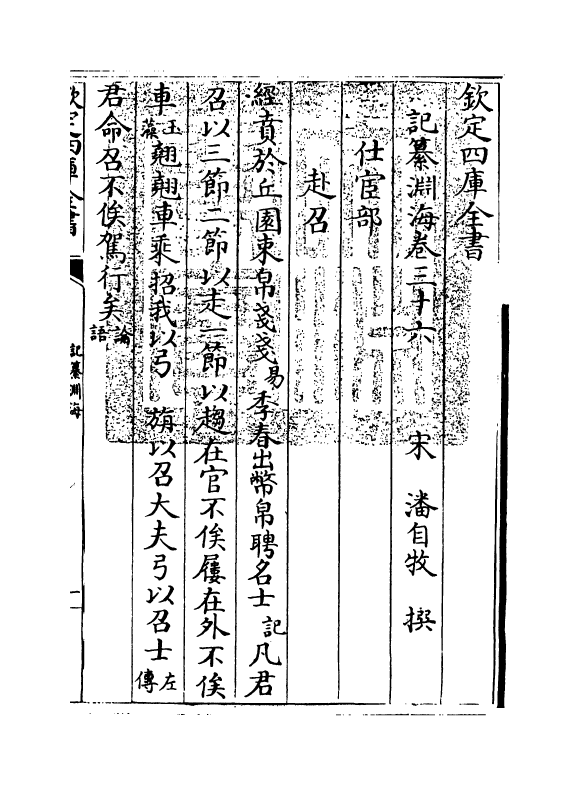 欽定四庫全書
記纂淵海卷三十六 宋 潘自牧 撰
仕宦部
赴召
經賁於丘園束帛戔戔易季春出幣帛聘名士記凡君
召以三節二節以走一節以趨在官不俟屨在外不俟
車玉藻翹翹車乘招我以弓 旃以召大夫弓以召士左傳
君命召不俟駕行矣論語
欽定四庫全書
記纂淵海
一